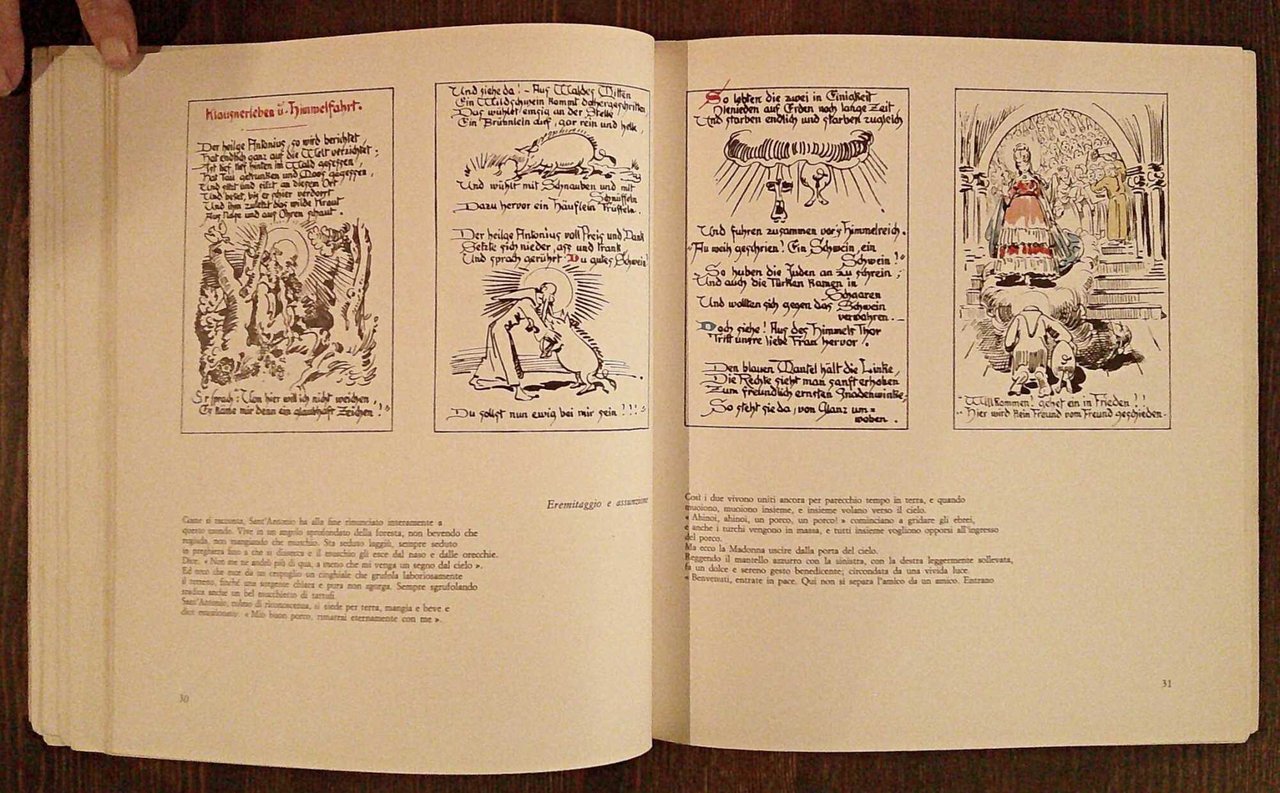 Klausnerleben u. Himmelfahrt.
Der heilge Antonius, so wird berichtet
Hat endlich ganz auf die Welt verzichtet;
Ist tief, tief hinten im Wald gesessen,
Hat Tau getrunken und Moos gegessen,
Und sitzt und sitzt an diesem Ort
Und betet, bis er schier verdorrt
Und ihm zuletzt das wilde Kraut
Aus Nase und aus Ohren schaut.
Er sprach: Von hier will ich nicht weichen,
Es käme mir denn ein glaubhaft Zeichen!"
Und siehe da! - Aus Waldes Mitten
Ein Wildschwein kommt dahergeschritten,
Das wühlet emsig an der Stelle
Ein Brünnlein auf, gar rein und helle,
Und wühlt mit Schnauben und mit
Schnüffeln
Dazu hervor ein Häuflein Trüffeln.
Der heilge Antonius voll Preis und Dank
Setzte sich nieder, ass und trank,
Und sprach gerührt: Du gutes Schwein!
Du sollst nun ewig bei mir sein!!!"
So lebten die zwei in Einigkeit
Hienieden auf Erden noch lange Zeit,
Und starben endlich und starben zugleich
Und fuhren zusammen vor's Himmelreich.
"Au weih geschrien! Ein Schwein, ein
Schwein!"
So huben die Juden an zu schrein;
Und auch die Türken kamen in
Schaaren
Und wollten sich gegen das Schwein
verwahren. -
Doch siehe! Aus des Himmels Thor
Tritt unsre liebe Frau hervor!
Den blauen Mantel hält die Linke,
Die Rechte sieht man sanft erhoben
Zum freundlich ernsten Gnadenwinke;
So steht sie da, von Glanz um=
woben.
"Willkommen! gehet ein in Frieden!!
Hier wird kein Freund vom Freund geschieden.
Eremitaggio e assunzione
Come si racconta, Sant'Antonio ha alla fine rinunciato interamente a
questo mondo. Vive in un angolo sprofondato della foresta, non bevendo che
rugiada, non mangiando che muschio. Sta seduto laggiù, sempre seduto
in preghiera fino a che si dissecca e il muschio gli esce dal naso e dalle orecchie.
Dice: « Non me ne andrò più di qua, a meno che mi venga un segno dal cielo ».
Ed ecco che esce da un cespuglio un cinghiale che grufola laboriosamente
il terreno, finché una sorgente chiara e pura non sgorga. Sempre sgrufolando
sradica anche un bel mucchietto di tartufi.
Sant'Antonio, colmo di riconoscenza, si siede per terra, mangia e beve e
dice emozionato: « Mio buon porco, rimarrai eternamente con me ».
Così i due vivono uniti ancora per parecchio tempo in terra, e quando
muoiono, muoiono insieme, e insieme volano verso il cielo.
« Ahinoi, ahinoi, un porco, un porco! » cominciano a gridare gli ebrei,
e anche i turchi vengono in massa, e tutti insieme vogliono opporsi all'ingresso
del porco.
Ma ecco la Madonna uscire dalla porta del cielo.
Reggendo il mantello azzurro con la sinistra, con la destra leggermente sollevata,
fa un dolce e sereno gesto benedicente; circondata da una vivida luce.
« Benvenuti, entrate in pace. Qui non si separa l'amico da un amico. Entrano
30
31